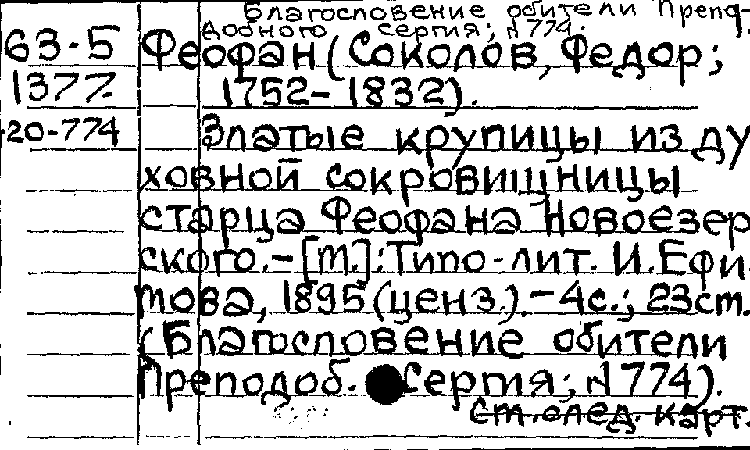 Благословение обители Препо-
добного Сергия; №774.
63-5
1377
20-774
Феофан (Соколов, Федор;
1752-1832).
Златые крупицы из ду
ховной сокровищницы
старца Феофана Новоезер
ского. - [М.]: Типо-лит. И.Ефи
мова, 1895 (ценз.). - 4с.; 23см.
(Благословение обители
Преподоб. Сергия; №774).
См. след. карт.